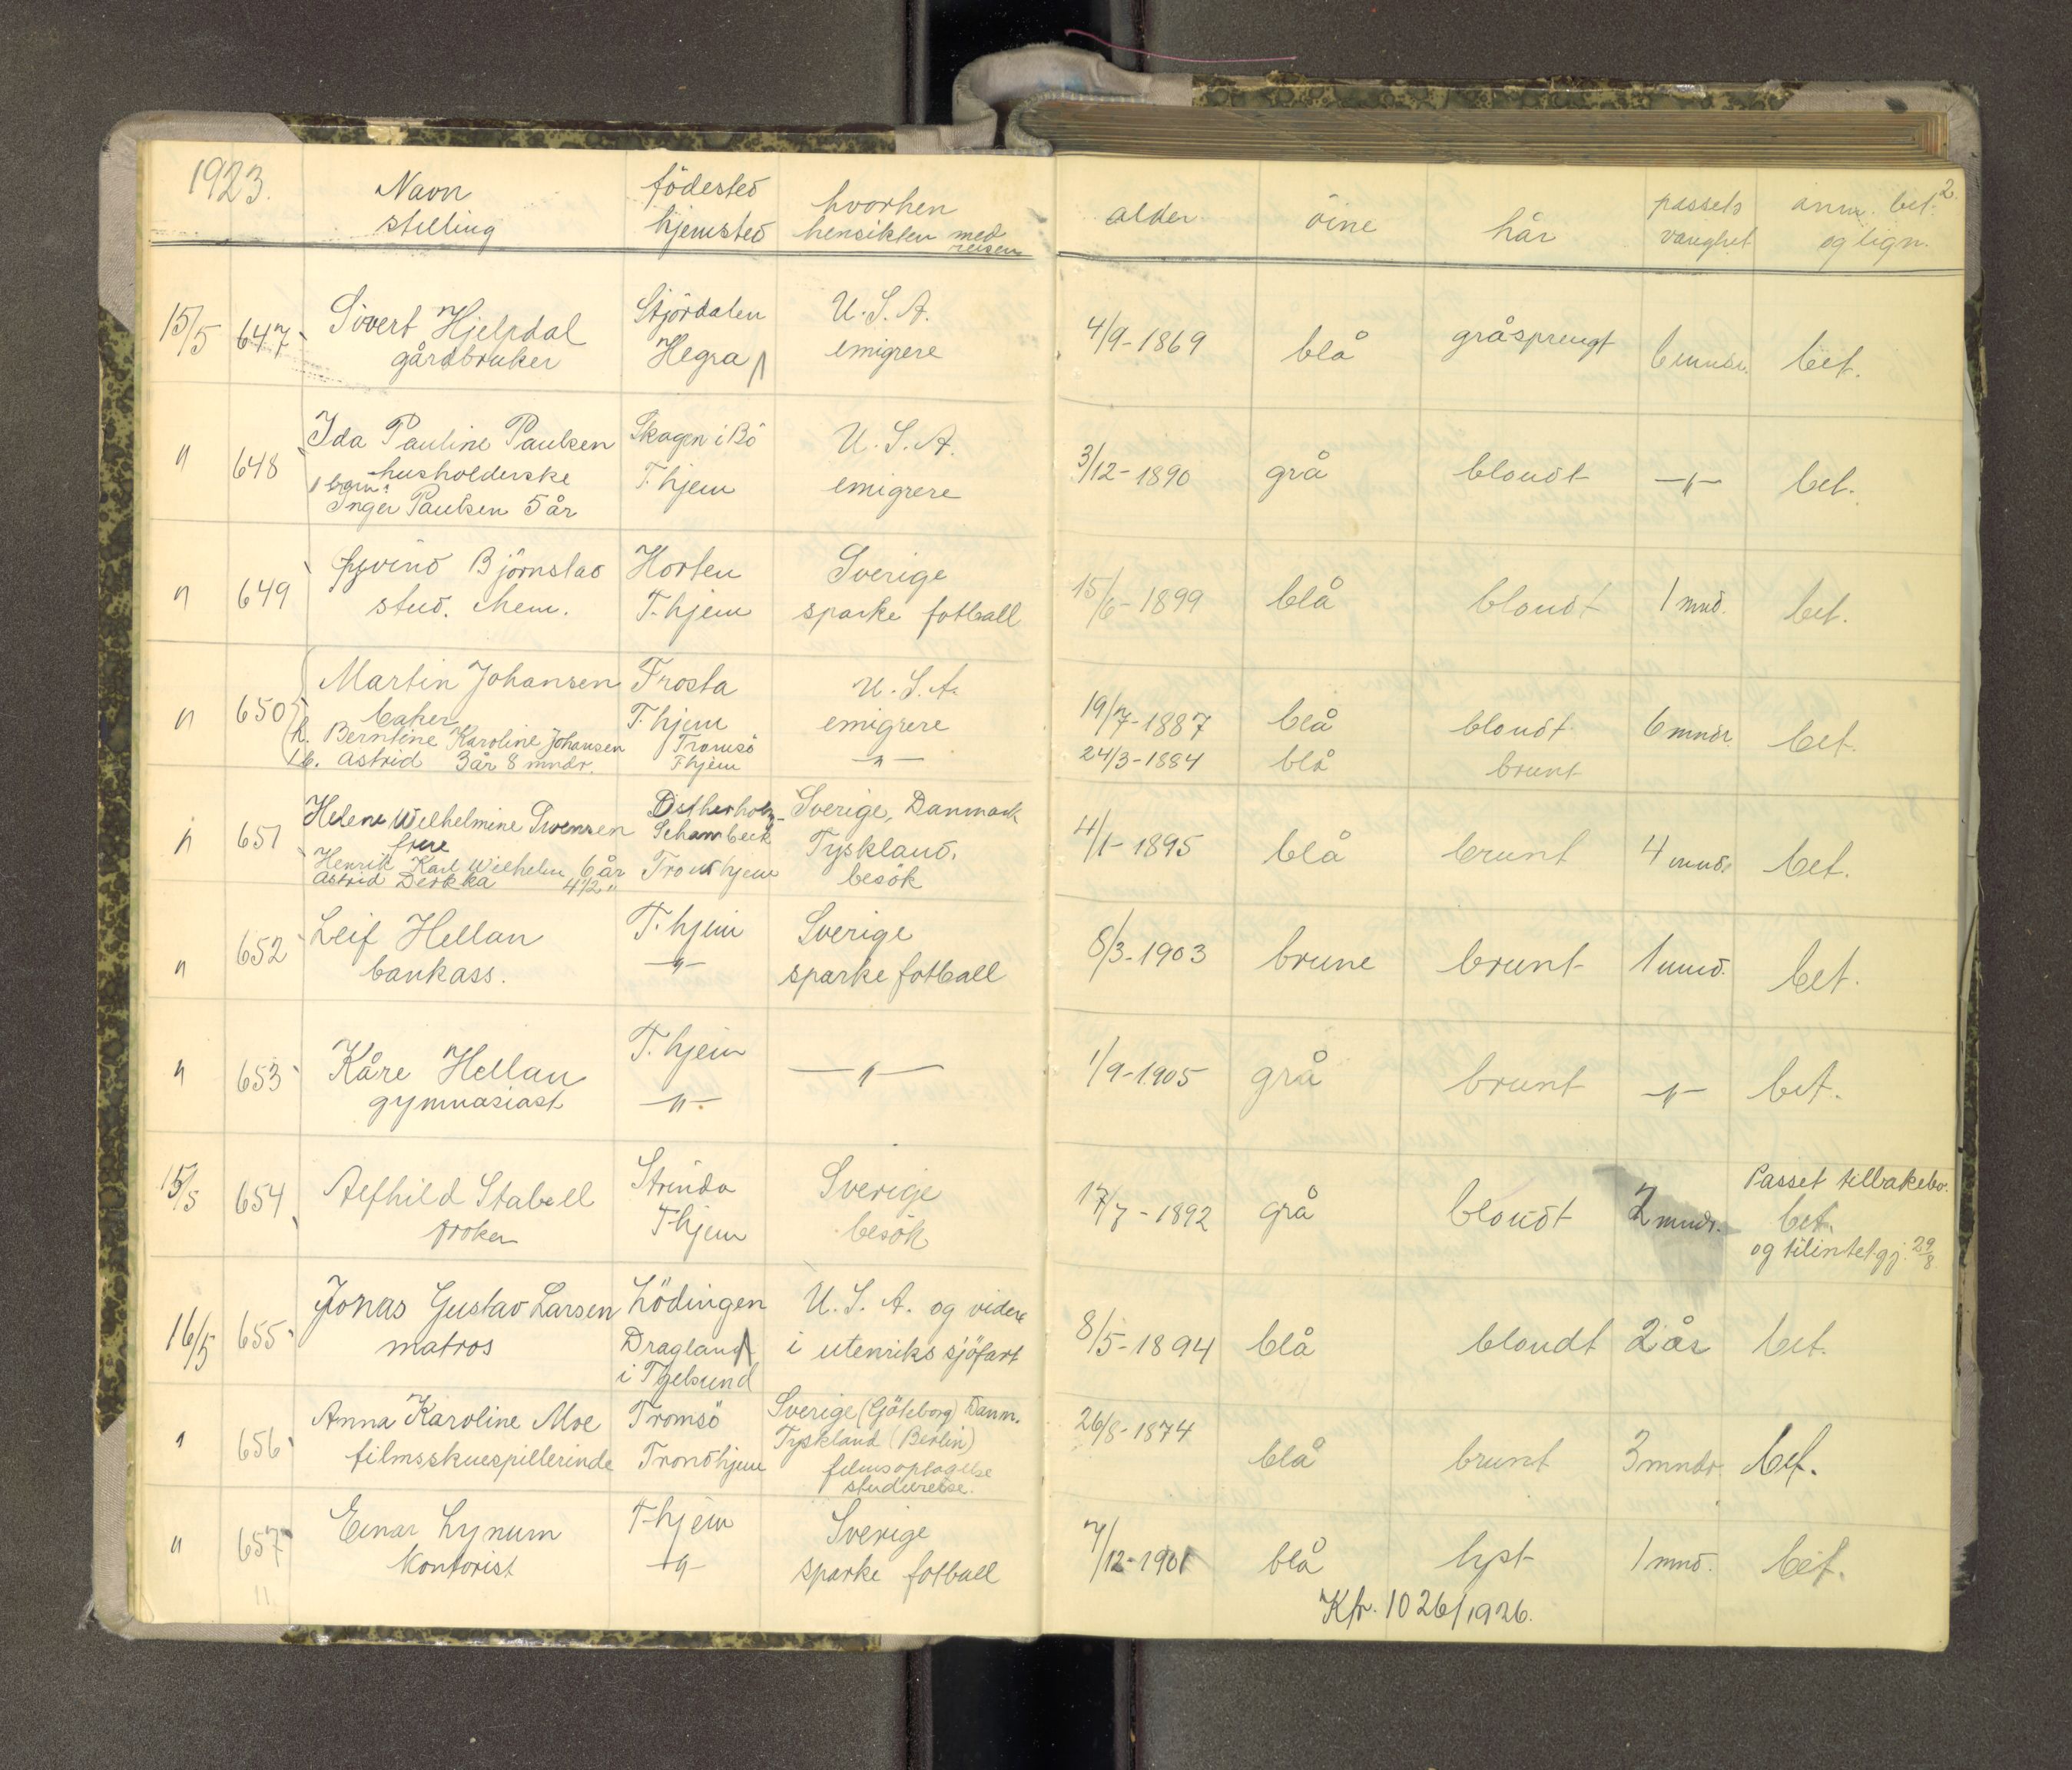 1923.
Navn
stilling
födested
hjemsted
hvorhen
hensikten med
reisen
alder
öine
hår
passets
varighet
anm. bet.
og lign.
2
15/5 647 Sivert Hjelpdal Stjördalen U.S.A. 4/9-1869 blå gråsprengt 6 mndr. bet.
gårdbruker Hegra emigrere
" 648 Ida Pauline Paulsen Skagen i Bö U.S.A. 3/12-1890 grå blondt -"- bet.
husholderske T.hjem emigrere
1 barn:
Inger Paulsen 5 år
" 649 Øyvind Björnstad Horten Sverige 15/6-1899 blå blondt 1 mnd. bet.
stud. chem. T.hjem sparke fotball
" 650 Martin Johansen Frosta U.S.A. 19/7-1887 blå blondt 6 mndr. bet.
baker T.hjem emigrere
h. Berntine Karoline Johansen Tromsö -"- 24/3-1884 blå brunt
1 b. Astrid 3 år 8 mndr. T.hjem
" 651 Helene Wilhelmine Svensen Ostherholz- Sverige, Danmark 4/1-1895 blå brunt 4 mndr bet.
frue Scharmbeck Tyskland.
Henrik Karl Wilhelm 6 år Trondhjem besök
Astrid Derkka 4 1/2 "
" 652 Leif Hellan T.hjem Sverige 8/3-1903 brune brunt 1 mnd. bet.
bankass. -"- sparke fotball
" 653 Kåre Hellan T.hjem -"- 1/9-1905 grå brunt -"- bet.
gymnasiast -"-
15/5 654 Alfhild Stabell Strinda Sverige 17/7-1892 grå blondt 2 mndr. Passet tilbakelev.
fröken T.hjem besök bet.
og tilintetgj. 29/8
16/5 655 Jonas Gustav Larsen Lödingen U.S.A. og videre 8/5-1894 blå blondt 2 år bet.
matros Dragland i utenriks sjöfart
i Tjelsund
" 656 Anna Karoline Moe Tromsö Sverige (Göteborg) Danm. 26/8-1874 blå brunt 3 mndr. bet.
filmsskuespillerinde Trondhjem Tyskland (Berlin)
filmsoptagelse
studiereise.
" 657 Einar Lynum T.hjem Sverige 7/12-1901 blå lyst 1 mnd. bet.
kontorist -"- sparke fotball
11
Kfr. 1026/1926.